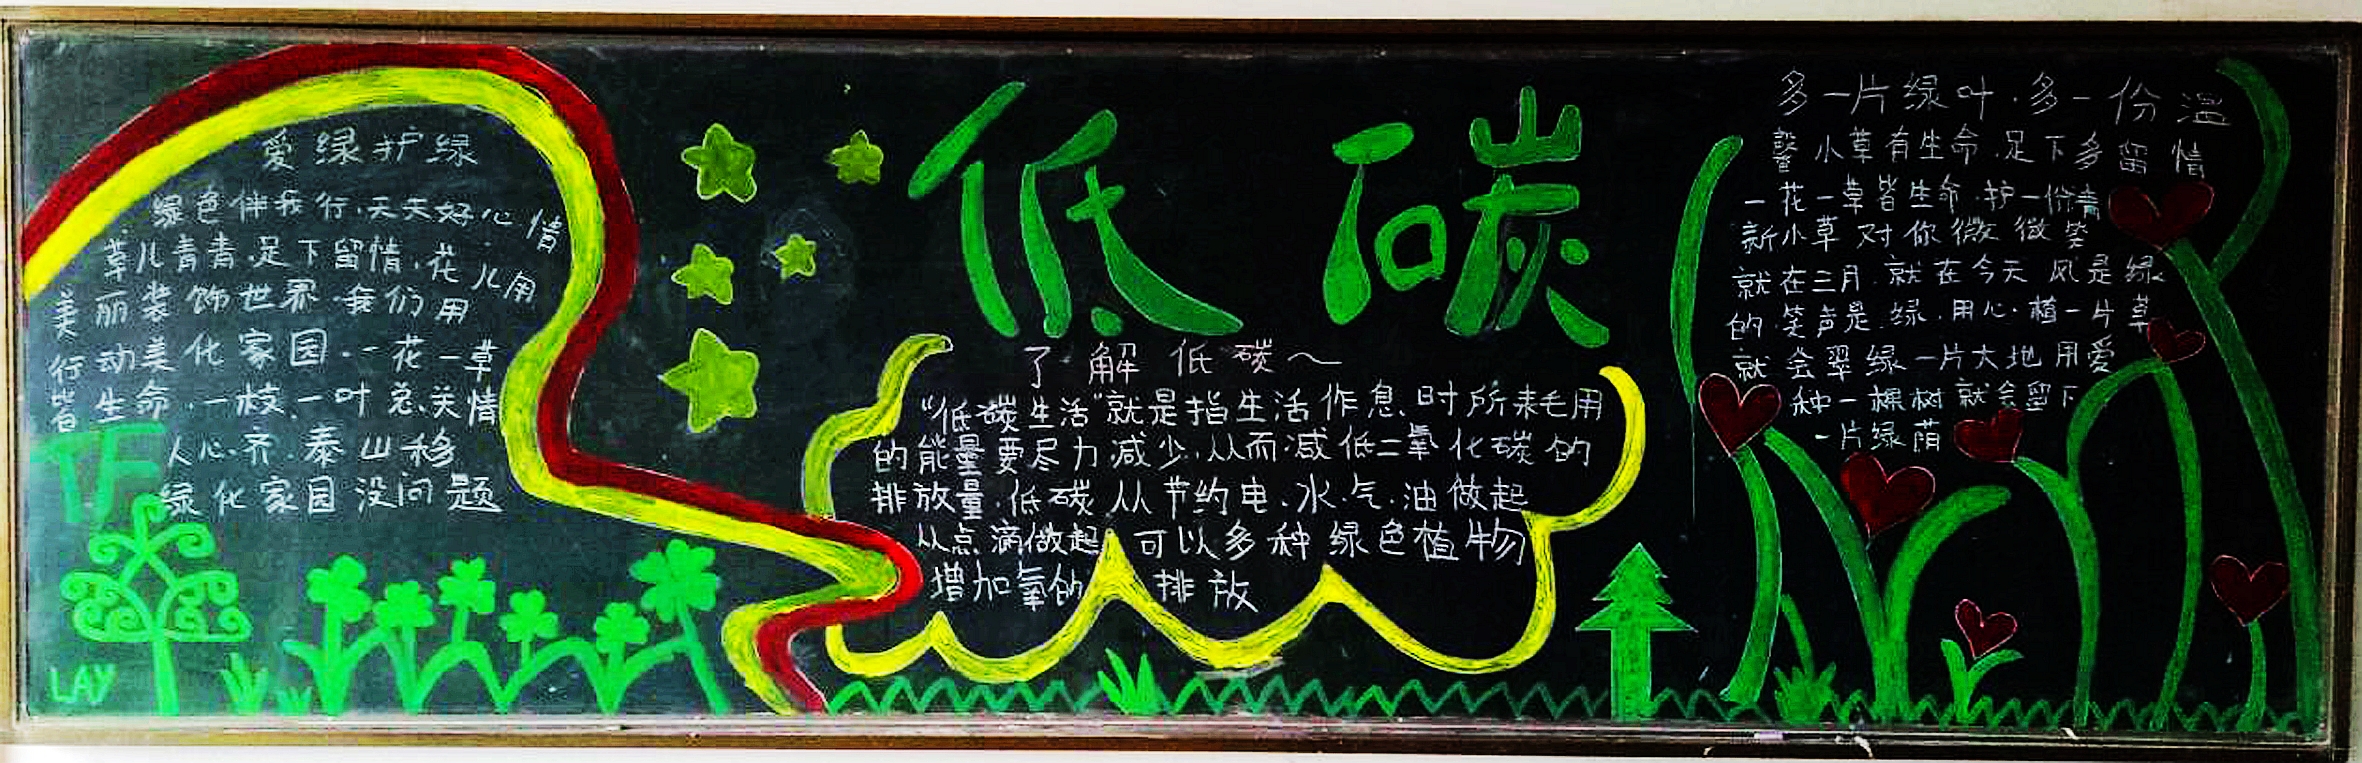 爱绿护绿
绿色伴我行.天天好心情
草儿青青.足下留情.花儿用
美丽装饰世界.我们用
行动美化家园.一花一草
皆生命.一枝一叶总关情
人心齐.泰山移
绿化家园没问题
TF
LAY
低碳
了解低碳～
“低碳生活”就是指生活作息时所耗用
的能量要尽力减少.从而.减低二氧化碳的
排放量.低碳从节约电.水.气.油做起
从点滴做起.可以多种绿色植物
增加氧的排放
多一片绿叶.多一份温
馨小草有生命.足下多留情
一花一草皆生命.护一份青
新小草对你微微笑
就在三月.就在今天 风是绿
的.笑声是.绿.用心.植一片草
就会翠绿一片大地用爱
种一棵树就会留下
一片绿荫